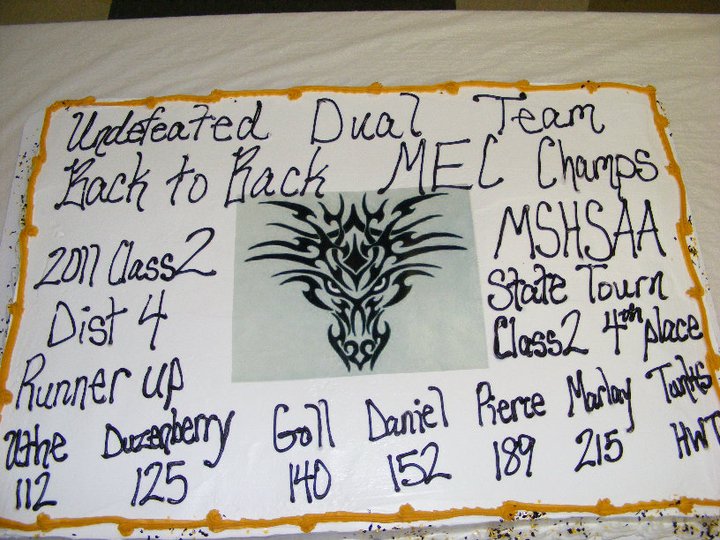 Undefeated Dual Team
Back to Back MEC Champs
2011 Class 2
Dist 4
Runner up
MSHSAA
State Tourn
Class 2 4th place
Uthe Duzenberry Goll Daniel Pierce Marlay
112 125 140 152 189 215 HWT